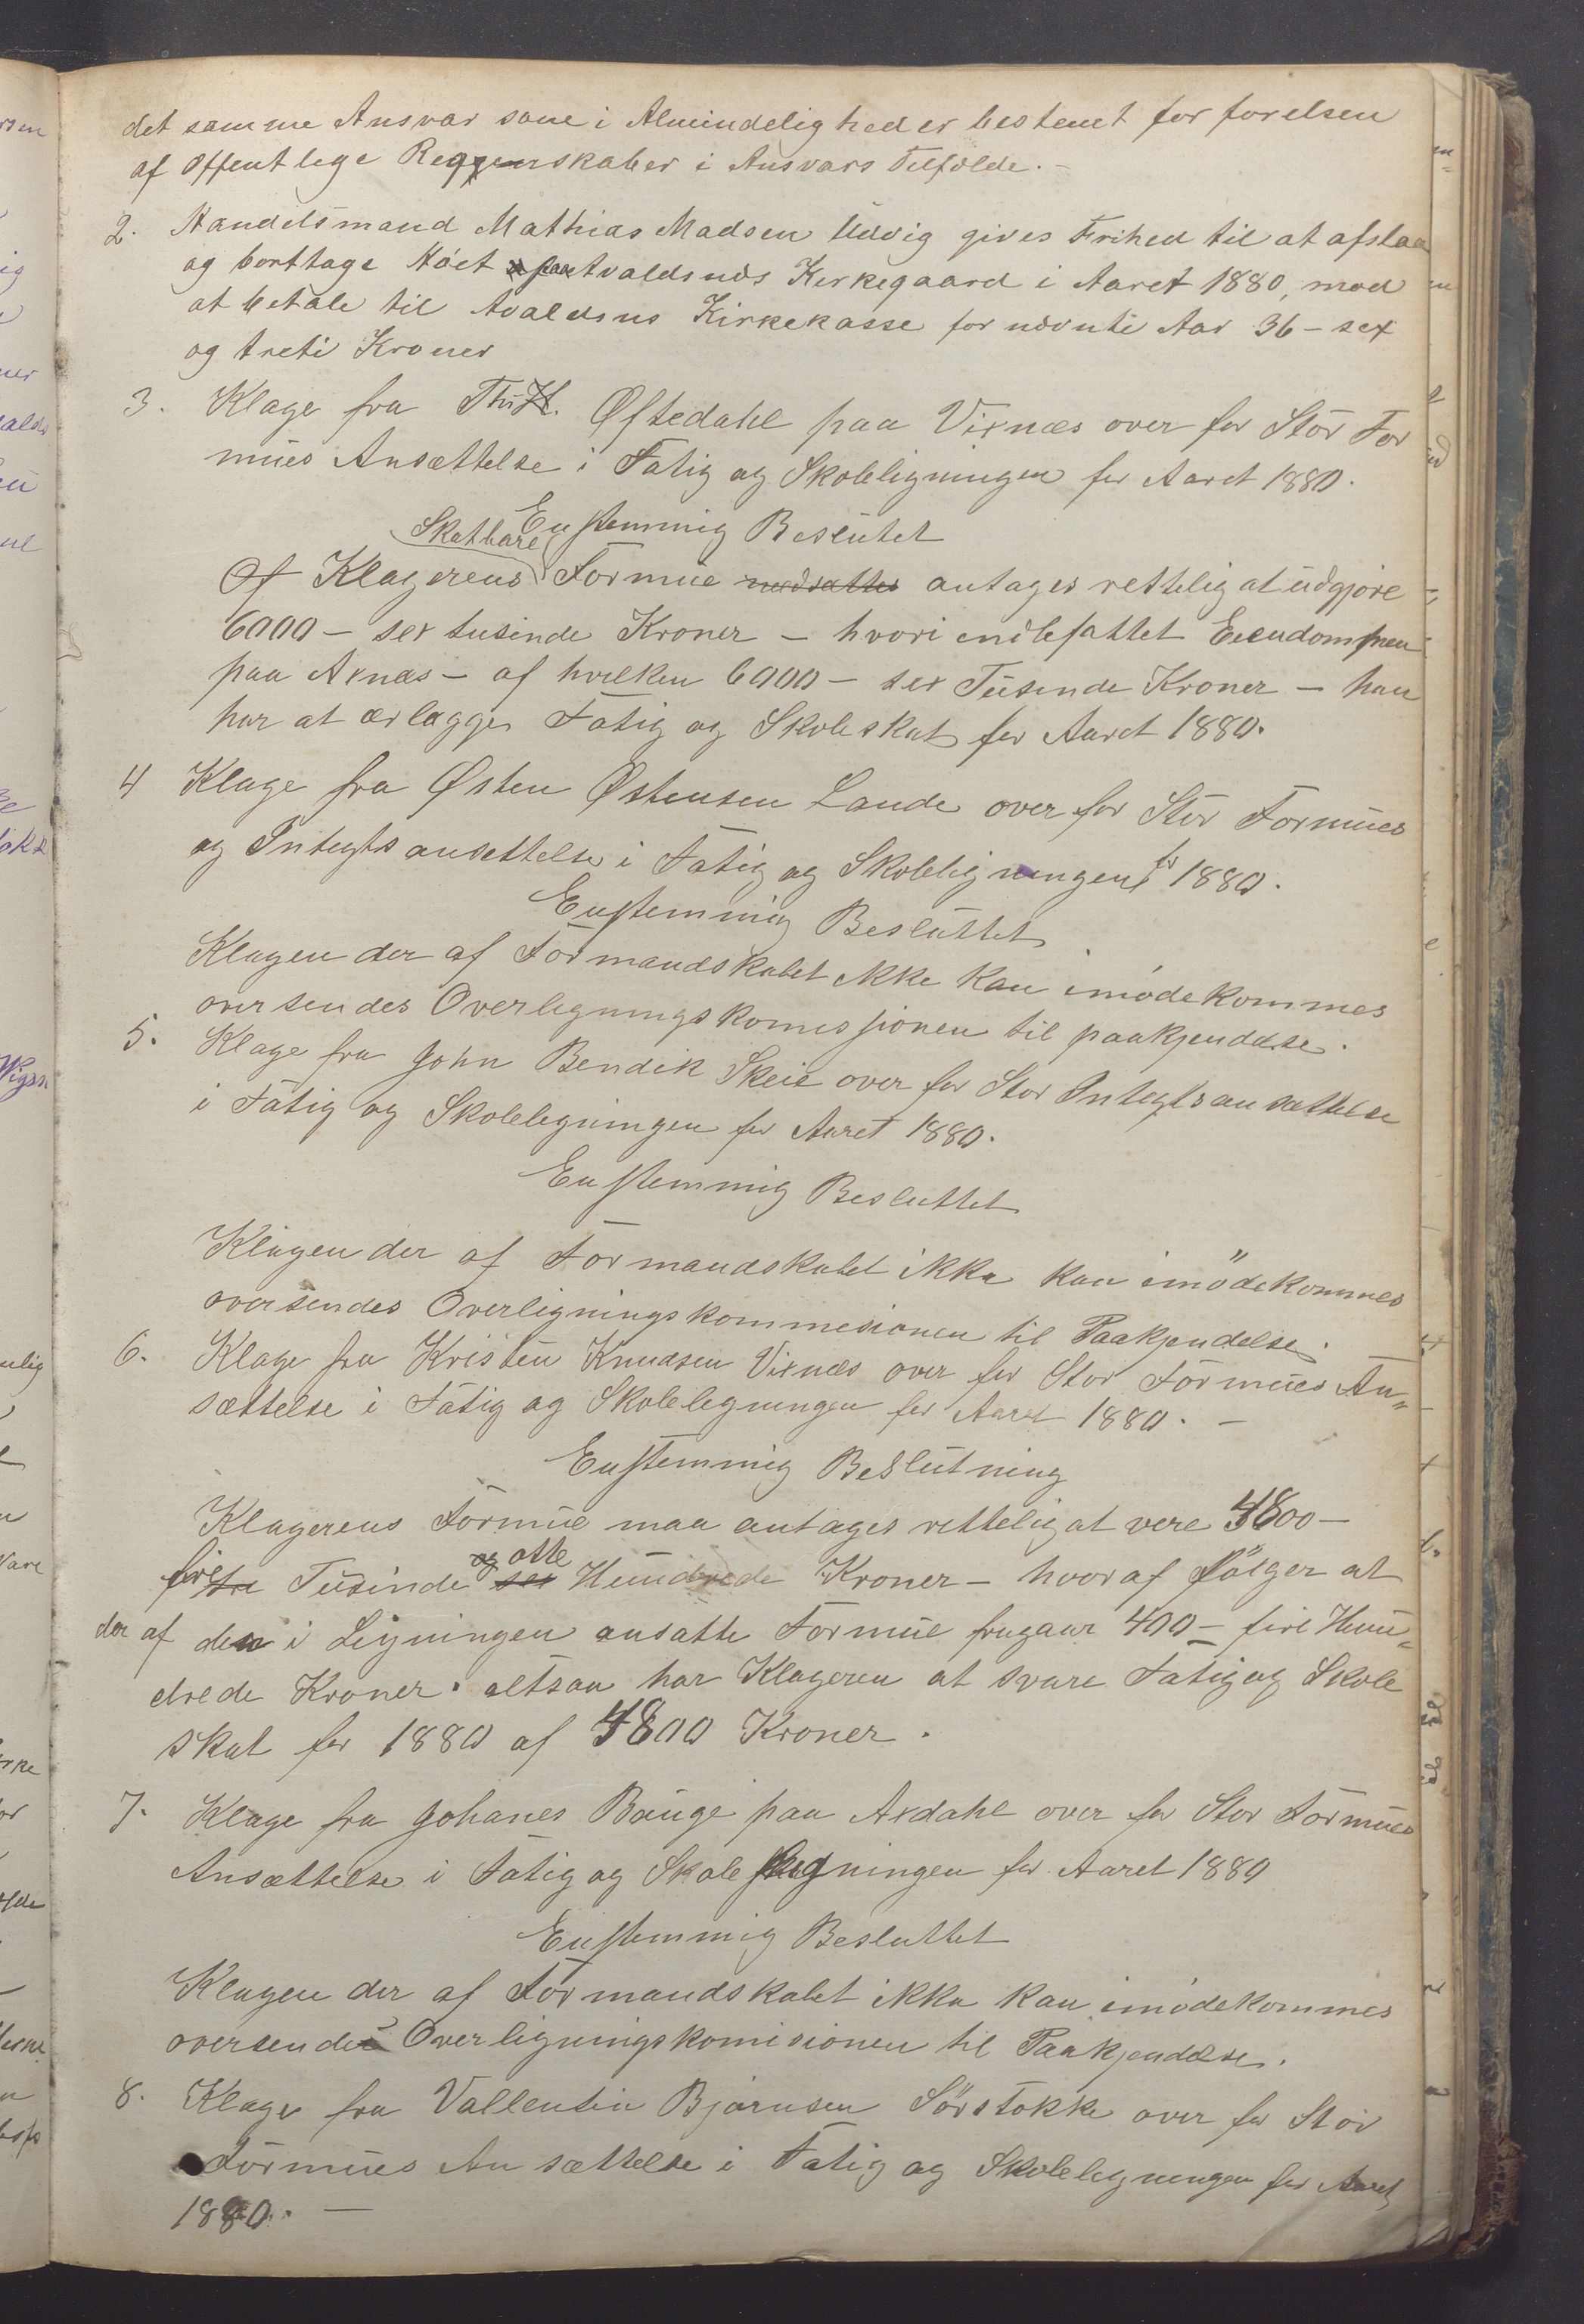 det samme Ansvar som i Almindelighed er bestemt for førelsen
af Offentlege Regnskaber i Ansvars Tilfølde. -
2. Handelsmand Mathias Madsen Udvig gives Frihed til at afslaa
og borttage Höet paa Avaldsnds Kerkegaard i Aaret 1880, mod
at betale til Avaldsns Kirkekasse for nævnte Aar 36 - sex
og treti Kroner
3. Klage fra Øftedahl paa Vixnæs over for Stor For
mues Ansættelse i Fatig og Skoleligningen for Aaret 1880.
Enstemmig Beslutet
Skatbare
Af Klagerens Formue nedsattes antages rettelig at udgjøre
6000 - sex tusinde Kroner - hvori indbefattet Eiendommen
paa Axnæs - af hvilken 6000 - sex Tusinde Kroner - han
har at ærlægge Fatig og Skoleskat for Aaret 1880.
4 Klage fra Østen Østensen Lande over for Stor Formues
og Integtsansettelse i Fatig og Skoleligningen for 1880.
Enstemmig Besluttet
Klagen der af Formandskabet ikke kan imødekommes
oversendes Overlegningskomissionen til paakjendelse.
5. Klage fra John Bendik Skeie over for Stor Integtsansættelse
i Fatig og Skolelegningen for Aaret 1880.
Enstemmig Besluttet
Klagen der af Formandskabet ikke kan imödekommes
oversendes Overligningskommesionen til Paakjendelse.
6. Klage fra Kristen Knudsen Vixnæs over for Stor Formues An„
sættelse i Fatig og Skolelegningen for Aaret 1880. -
Enstemmig Beslutning
Klagerens Formue maa antages rettelig at vere 4800 -
fire Tusinde og otte sex Hundrede Kroner - hvoraf følger at
der af den i Ligningen ansatte Formue fragaar 400 - fire Hun„
drede Kroner. altsaa har Klageren at svare Fatig og Skole
skat for 1880 af 4800 Kroner.
7. Klage fra Johanes Bauge paa Axdahl over for Stor Formues
Ansættelse i Fatig og Skolelegningen for Aaret 1880
Enstemmig Besluttet
Klagen der af Formandskabet ikke kan imødekommes
oversendes Overligningskomisionen til Paakjendelse.
8. Klage fra Vallentin Bjørnsen Sörstokke over for Stor
Formues Ansættelse i Fatig og Skolelegningen for Aaret
1880. -